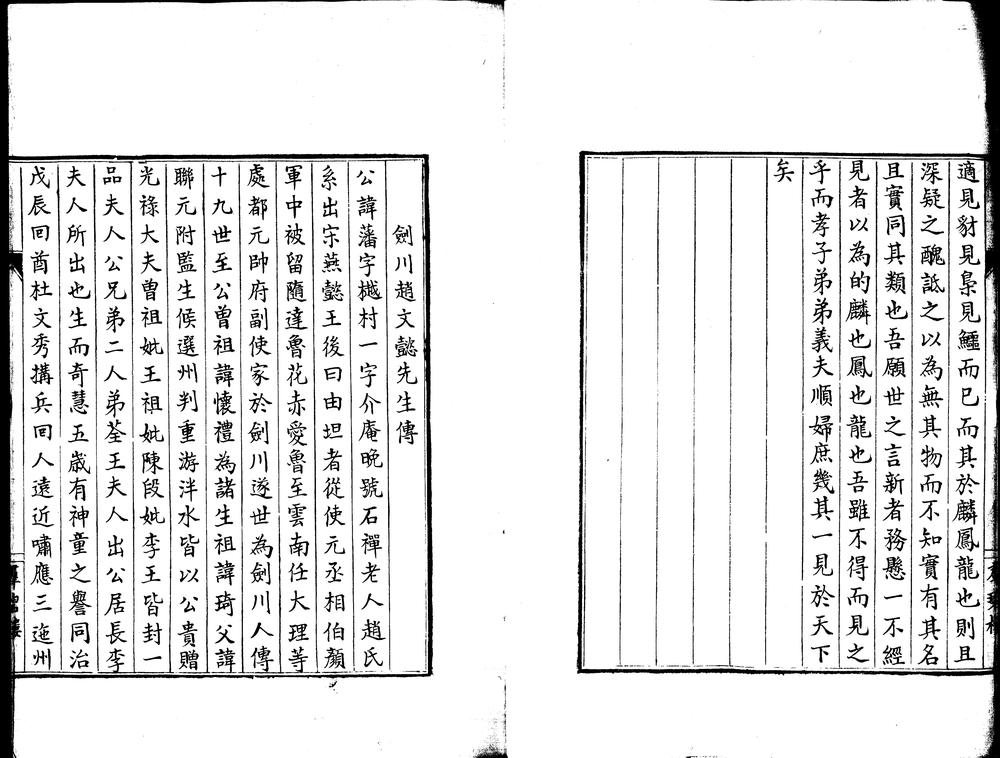 適見豺見梟見鱷而已而其於麟鳳龍也則且
深疑之醜詆之以為無其物而不知實有其名
且實同其類也吾願世之言新者務懸一不經
見者以為的麟也鳳也龍也吾雖不得而見之
乎而孝子弟弟義夫順婦庶幾其一見於天下
矣
劍川趙文懿先生傳
公諱藩字樾村一字介庵晚號石禪老人趙氏
系出宋燕懿王後曰由坦者從使元丞相伯顏
軍中被留隨達魯花赤愛魯至雲南任大理等
處都元帥府副使家於劍川遂世為劍川人傳
十九世至公曾祖諱懷禮為諸生祖諱琦父諱
聯元附監生候選州判重游泮水皆以公貴贈
光祿大夫曾祖妣王祖妣陳段妣李王皆封一
品夫人公兄弟二人弟荃王夫人出公居長李
夫人所出也生而奇慧五歲有神童之譽同治
戊辰回酋杜文秀搆兵回人遠近嘯應三迤州